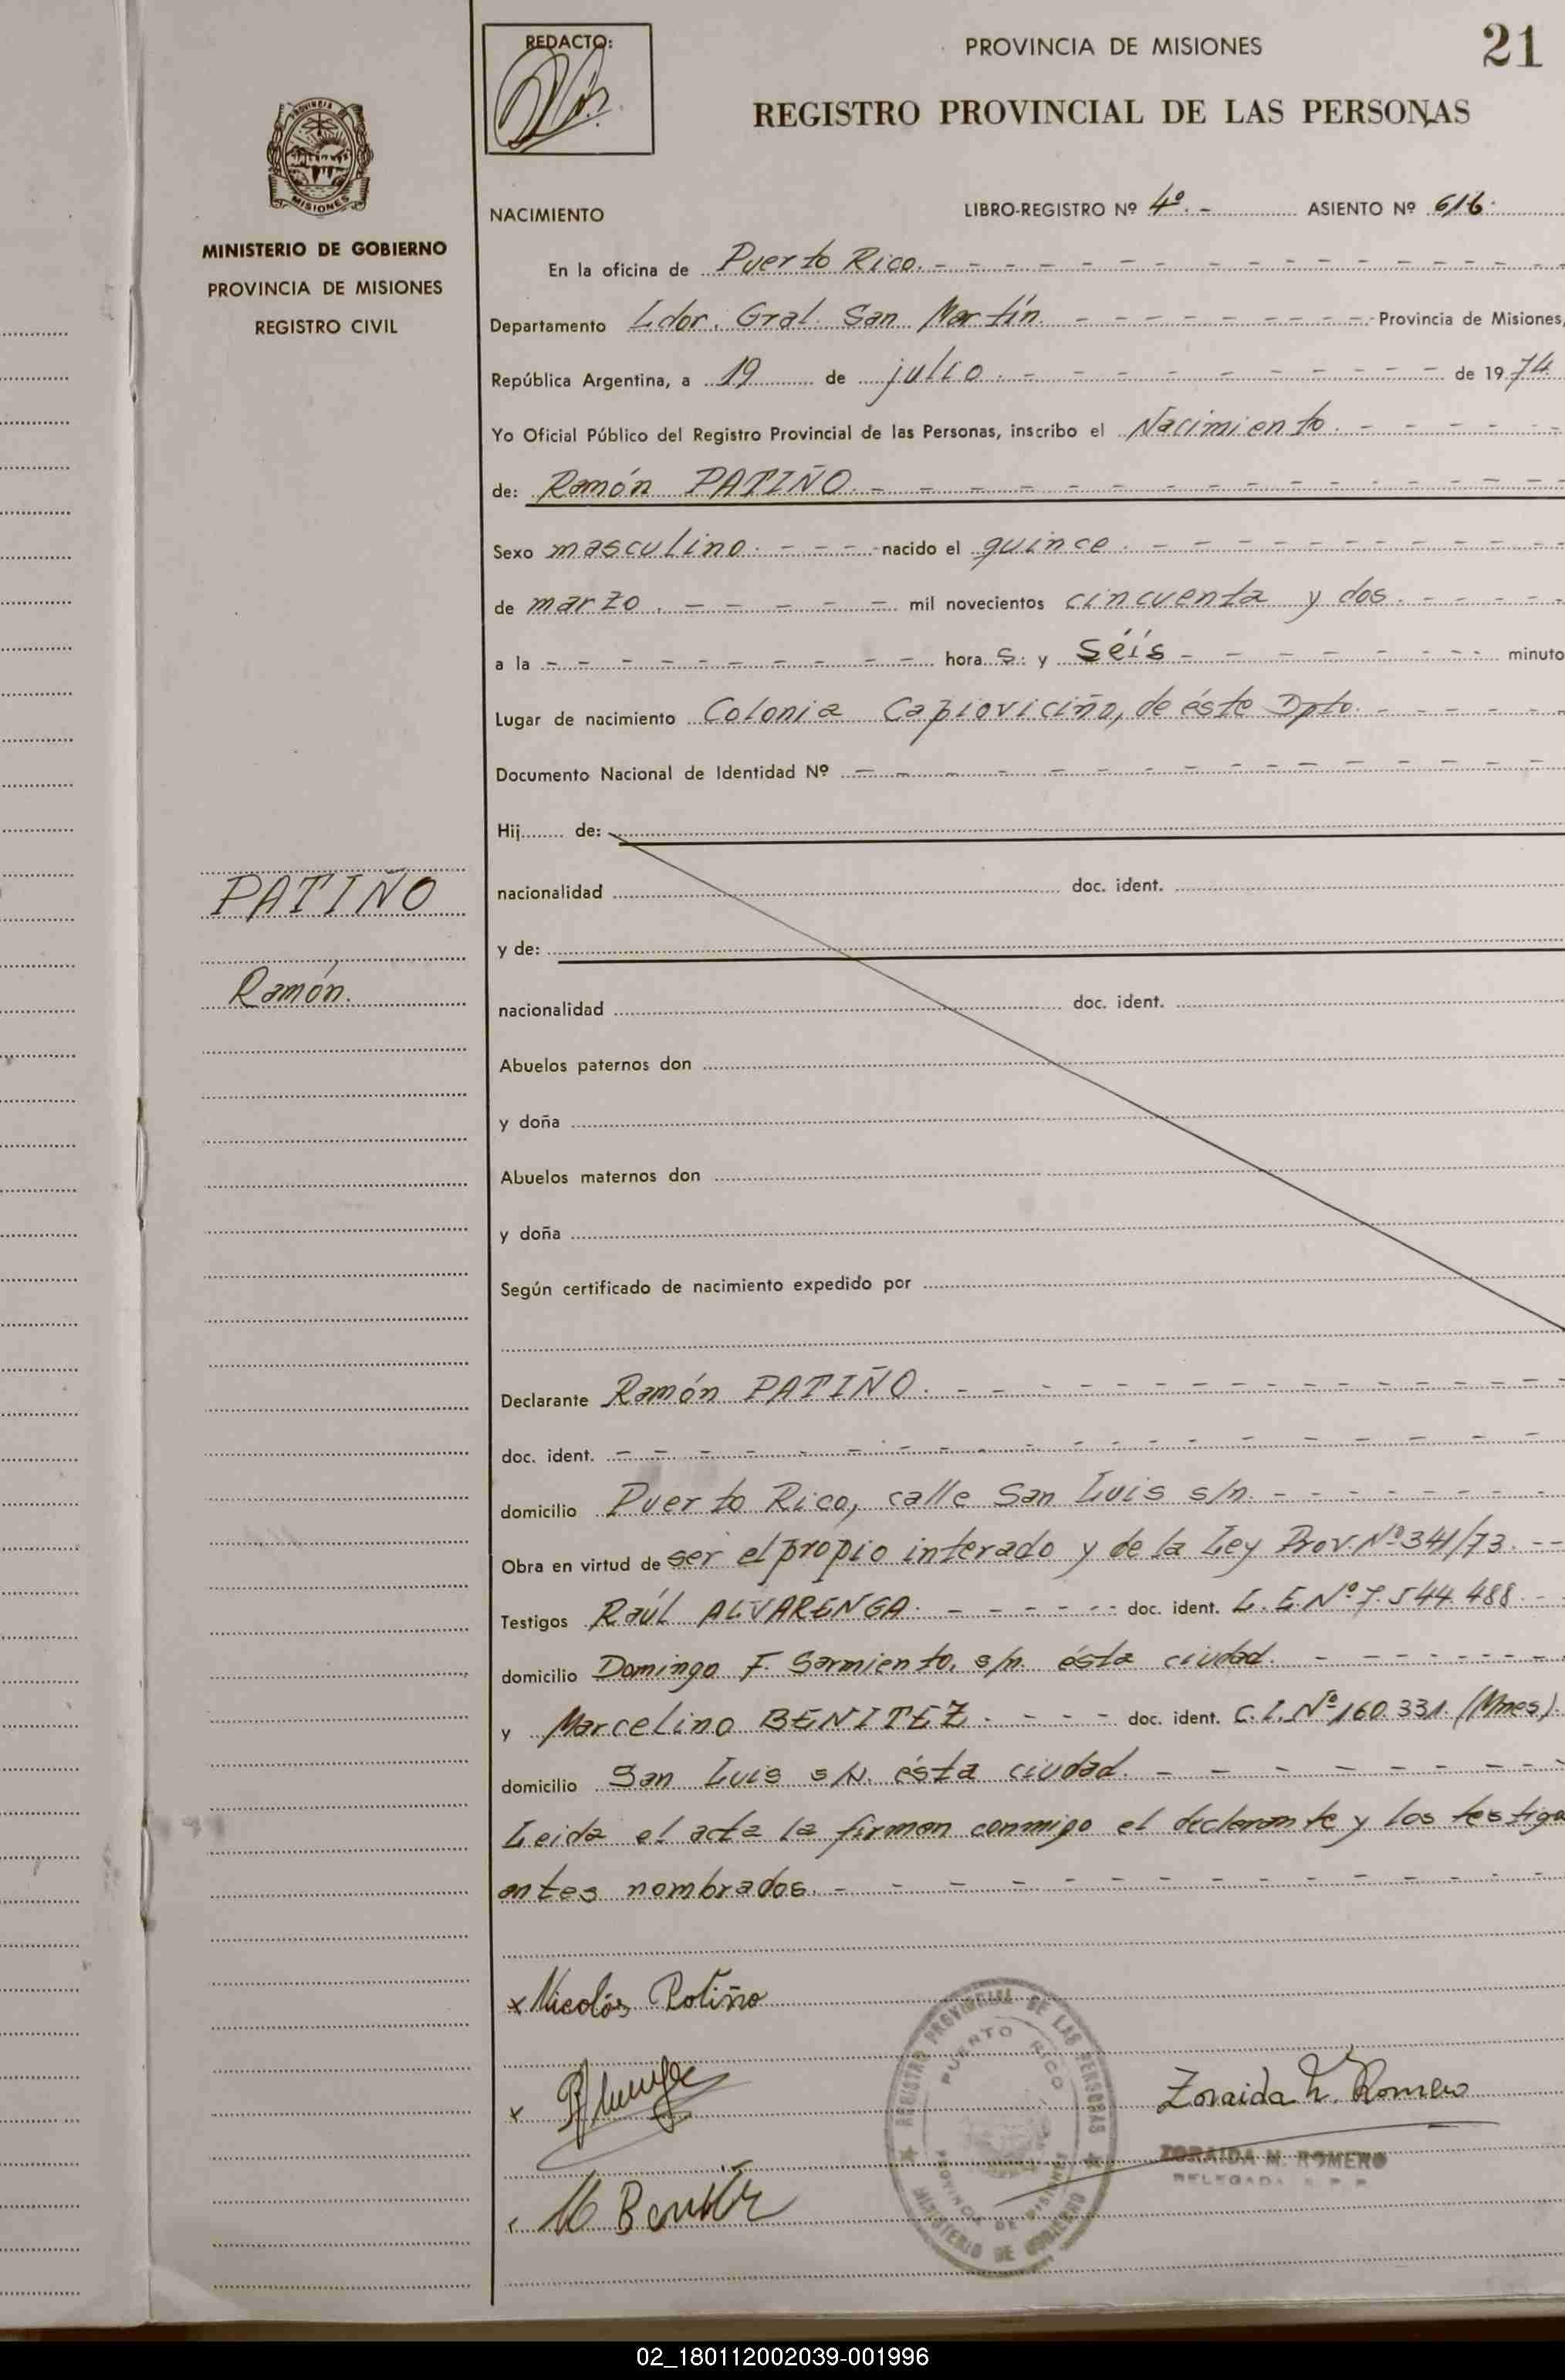 REDACTO:
PROVINCIA DE MISIONES
21
REGISTRO PROVINCIAL DE LAS PERSONAS
PROVINCIA
MISIONES
MINISTERIO DE GOBIERNO
PROVINCIA DE MISIONES
REGISTRO CIVIL
NACIMIENTO
LIBRO-REGISTRO Nº 4º. - ASIENTO Nº 616.
En la oficina de Puerto Rico.
Departamento Ldor. Gral. San Martín. Provincia de Misiones,
República Argentina, a 19 de julio. de 1974
Yo Oficial Público del Registro Provincial de las Personas, inscribo el Nacimiento.
de: Ramón PATIÑO.
Sexo masculino. nacido el quince.
de marzo. mil novecientos cincuenta y dos.
a la hora s. y séis minuto
Lugar de nacimiento Colonia Capioviciño, de éste Dpto.
Documento Nacional de Identidad Nº
Hij de:
PATIÑO
nacionalidad doc. ident.
y de:
Ramón.
nacionalidad doc. ident.
Abuelos paternos don
y doña
Abuelos maternos don
y doña
Según certificado de nacimiento expedido por
Declarante Ramón PATIÑO.
doc. ident.
domicilio Puerto Rico, calle San Luis s/n.
Obra en virtud de ser el propio interado y de la Ley Prov. Nº 341/73.
Testigos Raúl ALVARENGA. doc. ident. L.E. Nº 7.544.488.
domicilio Domingo F. Sarmiento, s/n. ésta ciudad.
y Marcelino BENITEZ. doc. ident. C.I. Nº 160.331. (Mnes).
domicilio San Luis s/N. ésta ciudad.
Leida el acta la firman conmigo el declarante y los testigo
antes nombrados.
x Nicolás Patiño
REGISTRO PROVINCIAL DE LAS PERSONAS
PUERTO RICO
PROVINCIA DE MISIONES
MINISTERIO DE GOBIERNO
x
Zoraida N. Romero
ZORAIDA N. ROMERO
DELEGADA R. P. P.
M Benitez
02_180112002039-001996